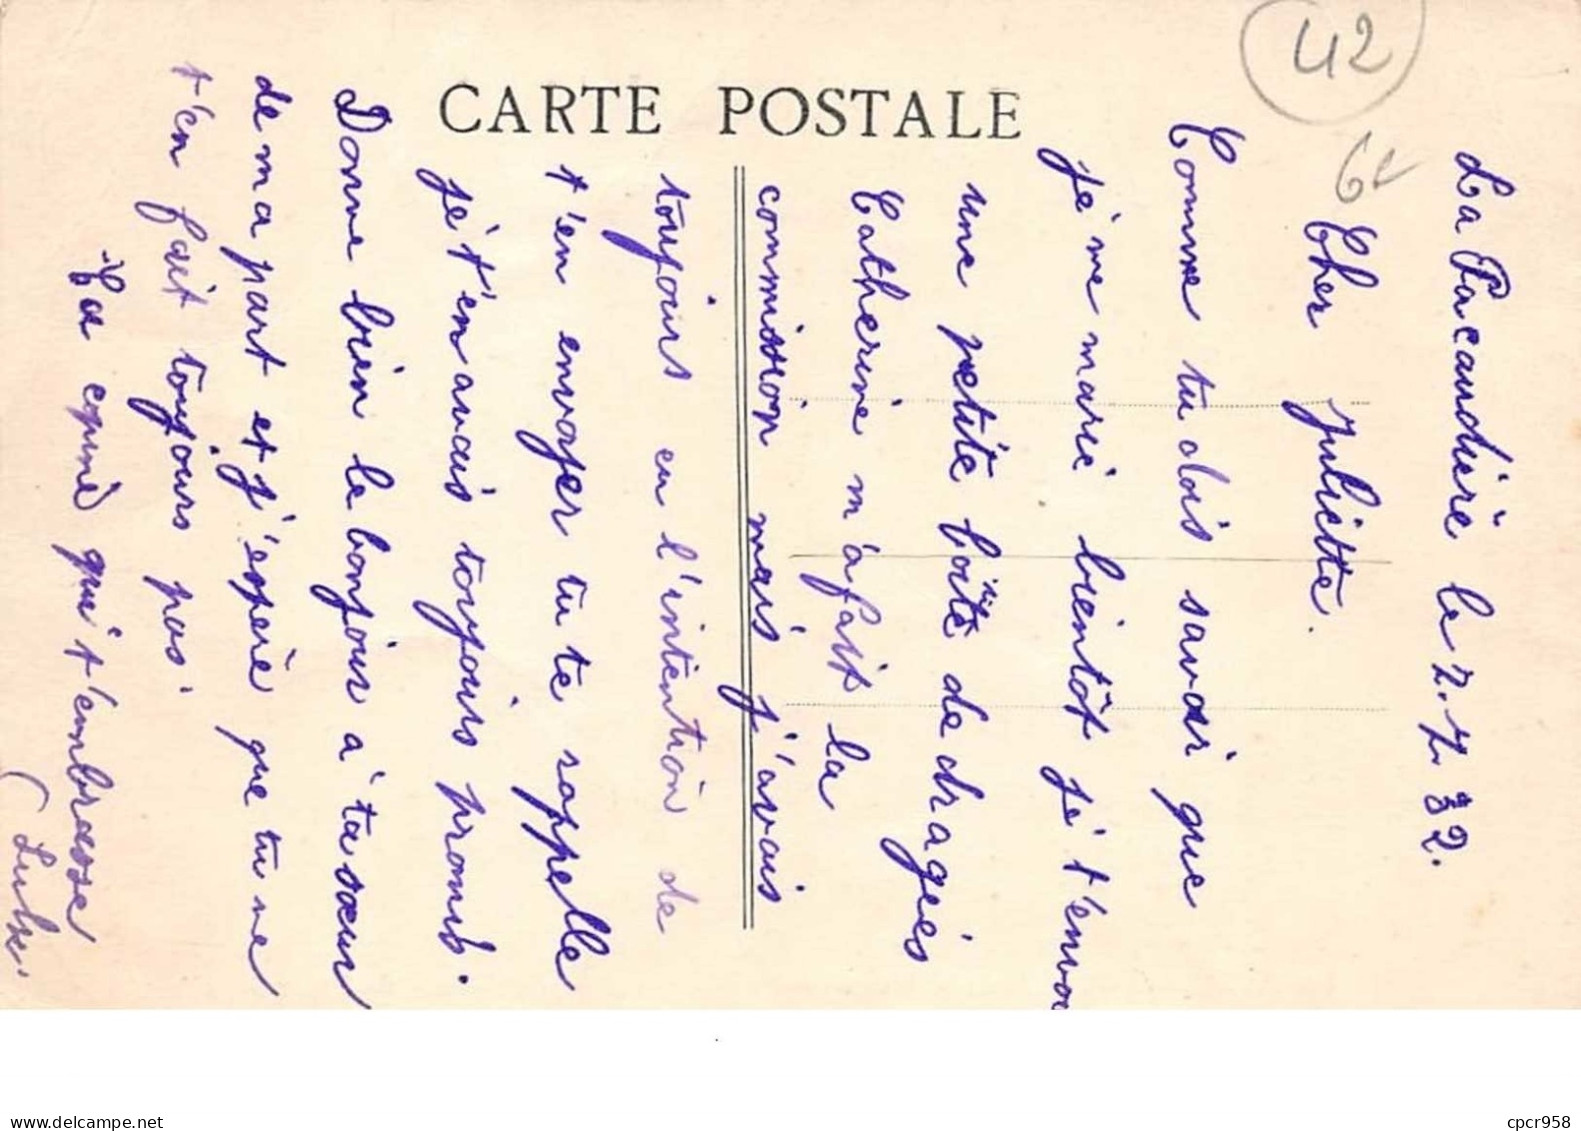 CARTE POSTALE
42
La Pacaudière le 2.7.32.
Cher Juliette.
Comme tu dois savoir que
je me marie bientôt je t'envoi
une petite boite de dragées
Catherine m'a fait la
commission mais j'avais
toujours eu l'intention de
t'en envoyer tu te rappelle
je t'en avais toujours promis.
Donne bien le bonjour a ta sœur
de ma part et j'espère que tu ne
t'en fait toujours pas
Ta copine que t'embrasse
cpcr958